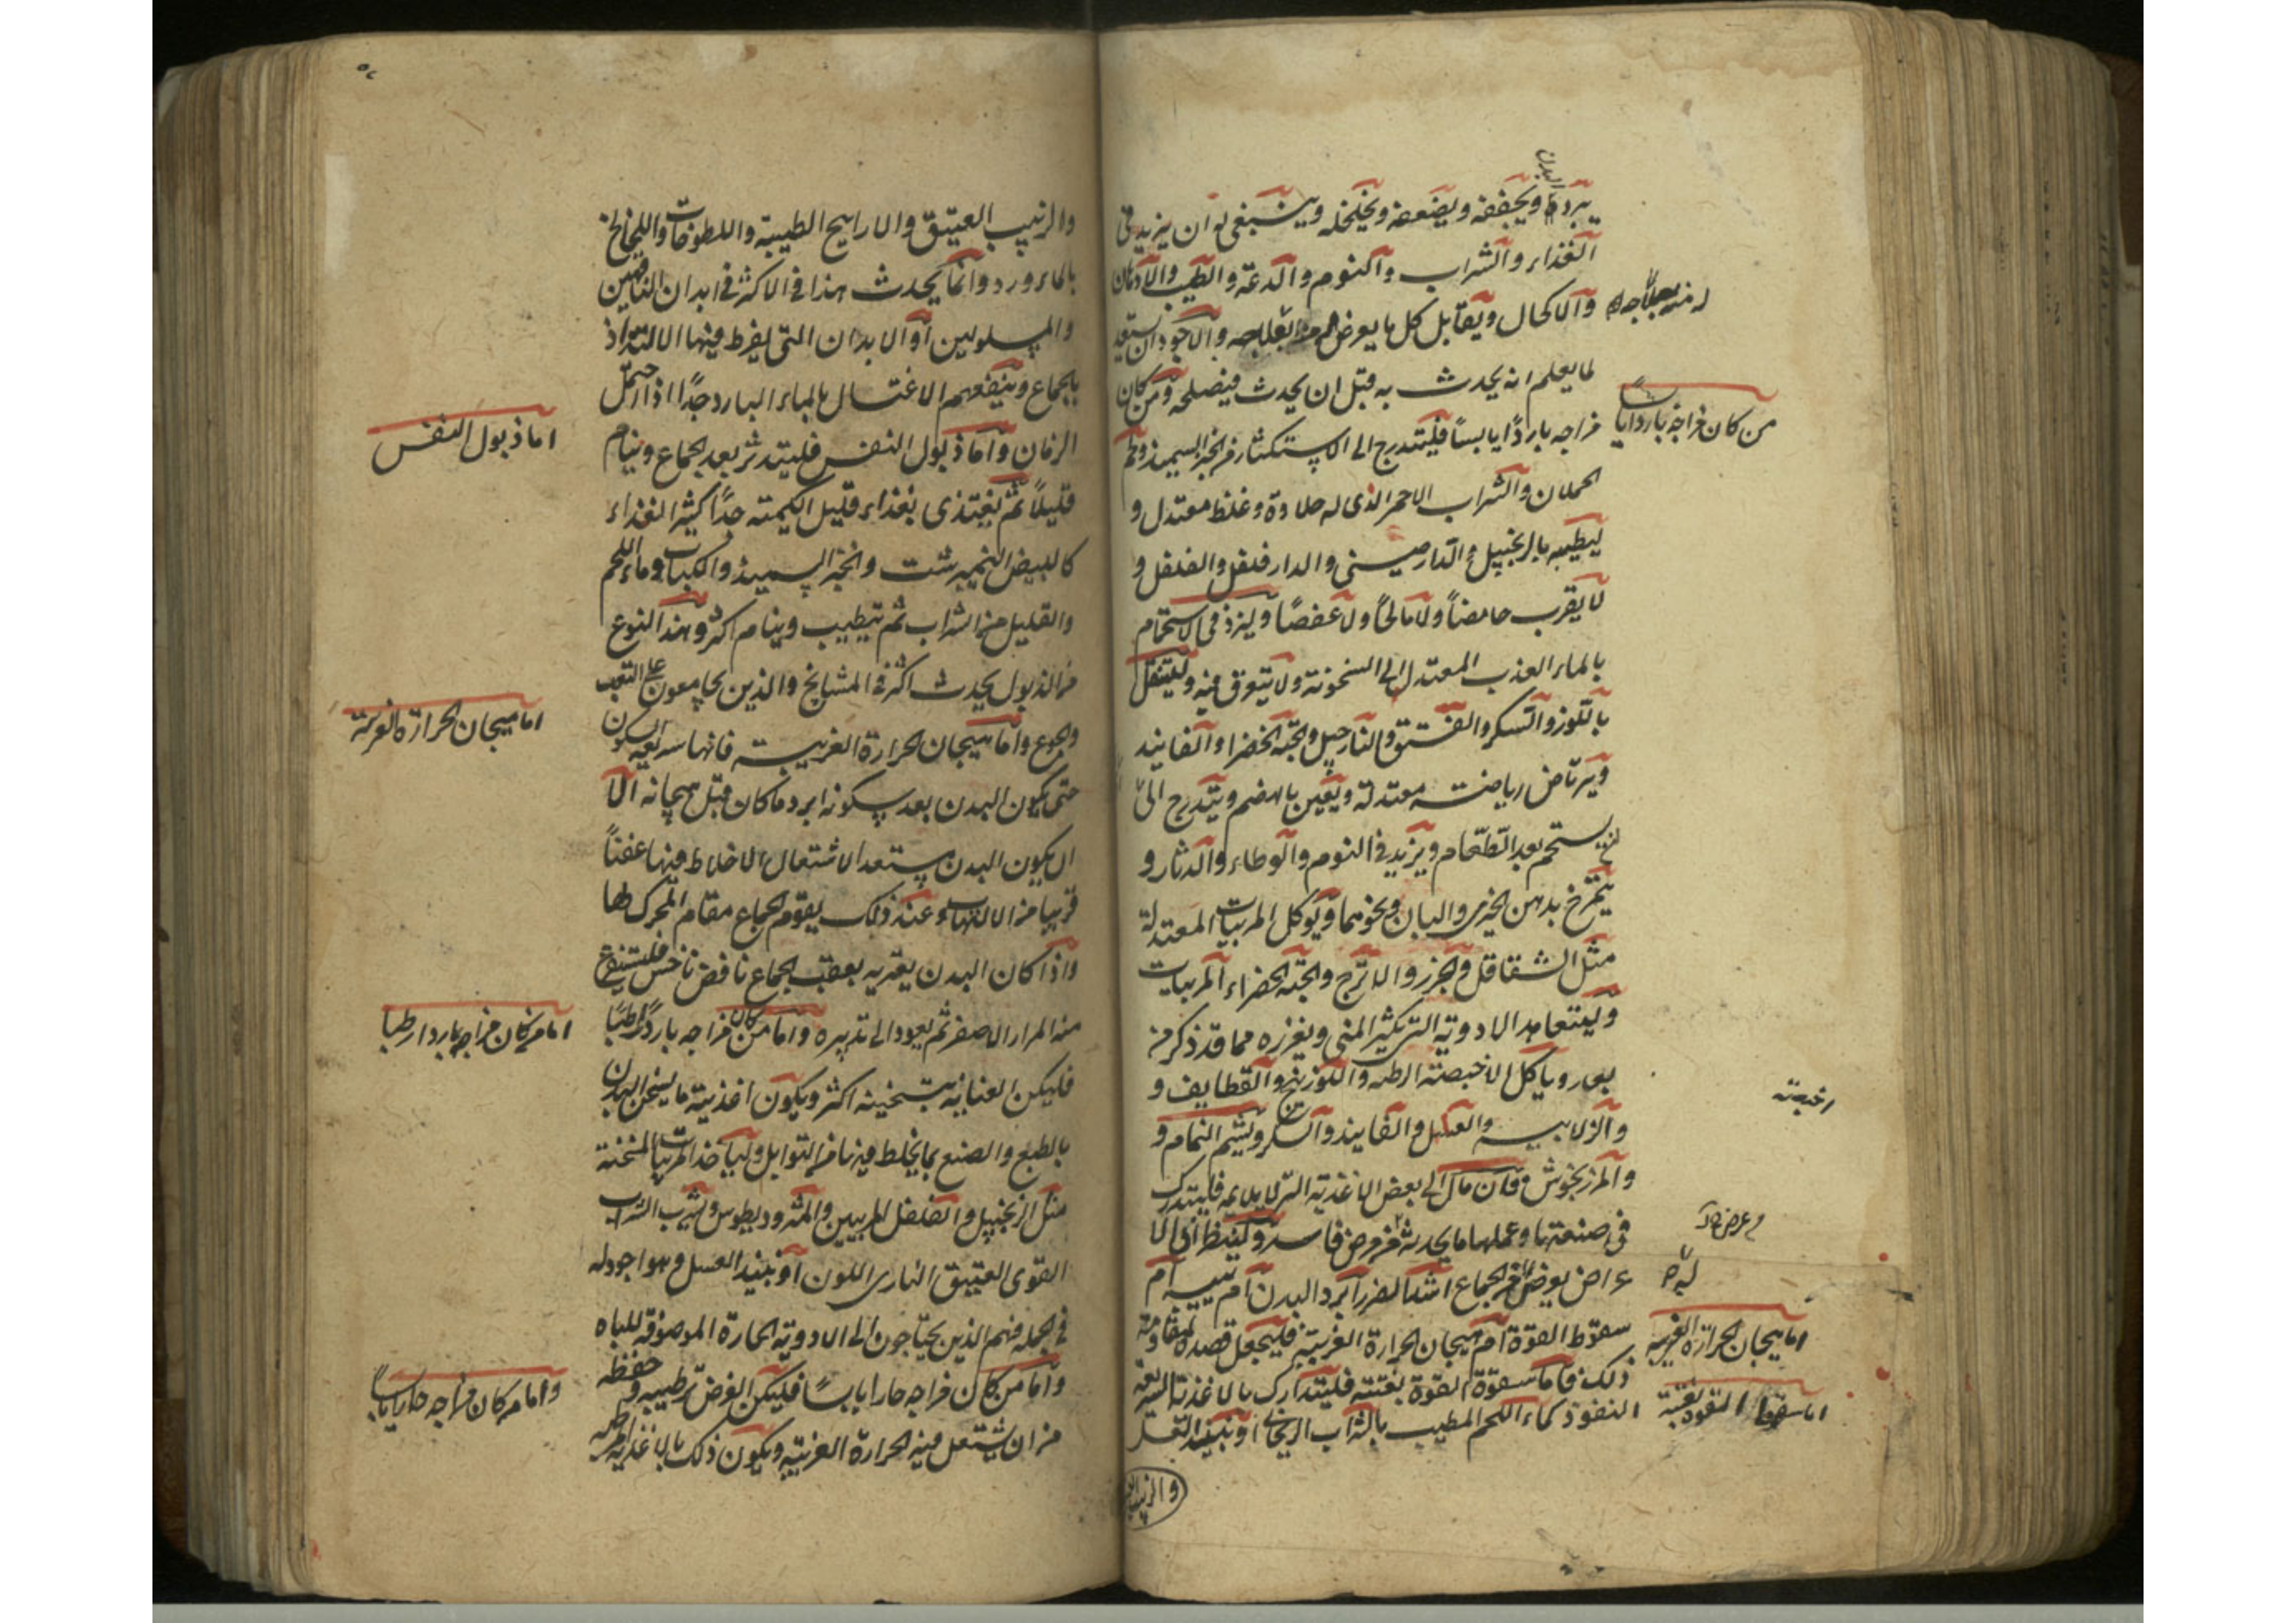 يبرد البدن ويجففه ويضعفه ويخلخله وينبغي له ان يزيد في
الغذاء والشراب والنوم والدعة والطيب والادهان
والاكحال ويقابل كل ما يعرض بعلاجه والاجود ان يستعد
لما يعلم انه يحدث به قبل ان يحدث فيصلحه ومن كان
من كان مزاجه باردا يابسا
مزاجه باردًا يابسًا فليتدرج الى الاستكثار من الخبز السميذ ولحم
الحملان والشراب الاحمر الذى له حلاوة وغلظ معتدل و
ليطيبه بالزنجبيل والدارصيني والدار فلفل والفلفل و
لا يقرب حامضًا ولا مالحًا ولا عفصًا وليزد في الاستحمام
بالماء العذب المعتدل الى السخونة ولا يتعرق فيه وليتنقل
باللوز والسكر والفستق والنارجيل والحبة الخضرا والفانيد
ويرتاض رياضة معتدلة ويعين بالهضم ويتدرج الى ان
يستحم بعد الطعام ويزيد في النوم والوطاء والدثار و
يتمرخ بدهن الخيرى والبان ونحوهما ويوكل المربيات المعتدلة
مثل الشقاقل والجزر والاترج والحبة الخضراء المربيات
وليتعاهد الادوية التى تكثر المنى ويغزره مما قد ذكر من
بعد وياكل الاخبصة الرطبة واللوزينج والقطايف و
اخبصة
والزلابيه والعسل والفانيد والسكر ويشم النمام و
والمرزنجوش فان مال الى بعض الاغذية التى لا يلايمه فليتدرك
فى صنعتها وعملها ما يحدث من مرض فاسد ولينظر اى الا
عراض يعرض من الجماع اشد الضرر ابرد البدن ام يبسه ام
سقوط القوة ام هيجان الحرارة الغريبة فليجعل قصده لمقاومة
اما هيجان الحرارة الغريبه
ذلك فاما سقوة القوة بغتة فليتدارك بالاغذية السريعة
اما سقوط القوة بغتة
النفوذ كماء اللحم المطيب بالشراب الريحاني او نبيذ العسل
والزبيب العتيق
والزبيب العتيق والارايح الطيبة واللطوخات واللخالخ
بالماء ورد وانما يحدث هذا في الاكثر في ابدان الناقهين
والمسلولين او الابدان التى يفرط فيها الالتذاذ
بالجماع وينفعهم الاغتسال بالماء البارد جدًا اذا احتمل
الزمان واما ذبول النفس فليتدثر بعد الجماع وينام
اما ذبول النفس
قليلًا ثم يغتذى بغذاء قليل الكمية جدًا كثير الغذاء
كالبيض النيمبرشت والخبز السميذ والكباب وماء اللحم
والقليل من الشراب ثم يتطيب وينام اكثر وهذا النوع
من الذبول يحدث اكثر في المشايخ والذين يجامعون على التعب
والجوع واما هيجان الحرارة الغريبة فانها سريعة السكون
اما هيجان الحرارة الغريبة
حتى يكون البدن بعد سكونه ابرد مما كان قبل هيجانه الا
ان يكون البدن مستعدا لاشتعال الاخلاط فيها عفنًا
قريبا من الالتهاب وعند ذلك يقوم الجماع مقام المحرك لها
واذا كان البدن يعتريه بعقب الجماع نافض ناخس فليستفرغ
منه المرار الاصفر ثم يعود الى تدبيره واما من كان مزاجه باردًا رطبًا
اما من كان مزاجه باردا رطبا
فليكن العناية بتسخينه اكثر ويكون اغذيته ما يسخن البدن
بالطبع والصنع بما يخلط فيها من التوابل وليأخذ المربيات المسخنة
مثل الزنجبيل والفلفل المربيين والمثروديطوس ويشرب الشراب
القوى العتيق النارى اللون او نبيذ العسل وهو اجود له
في الجمله فهم الذين يحتاجون الى الادوية الحارة الموصوفة للباه
واما من كان مزاجه حارا يابسًا فليكن الغرض ترطيبه وحفظه
واما من كان مزاجه حارا يابسا
من ان يشتعل فيه الحرارة الغريبة ويكون ذلك بالاغذية